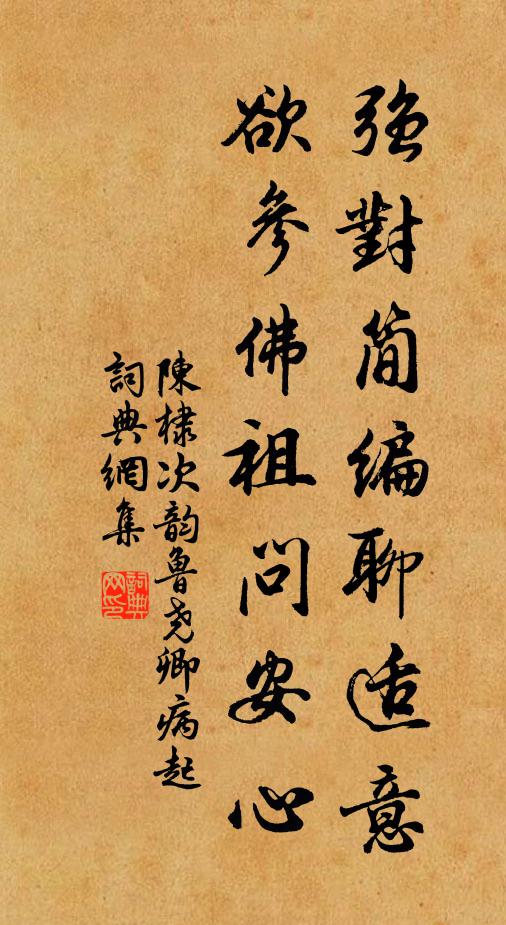 強對简编聊适意
欲參佛祖問安心
陳棣次韵魯尧卿病起
詞典網集
詞典网印